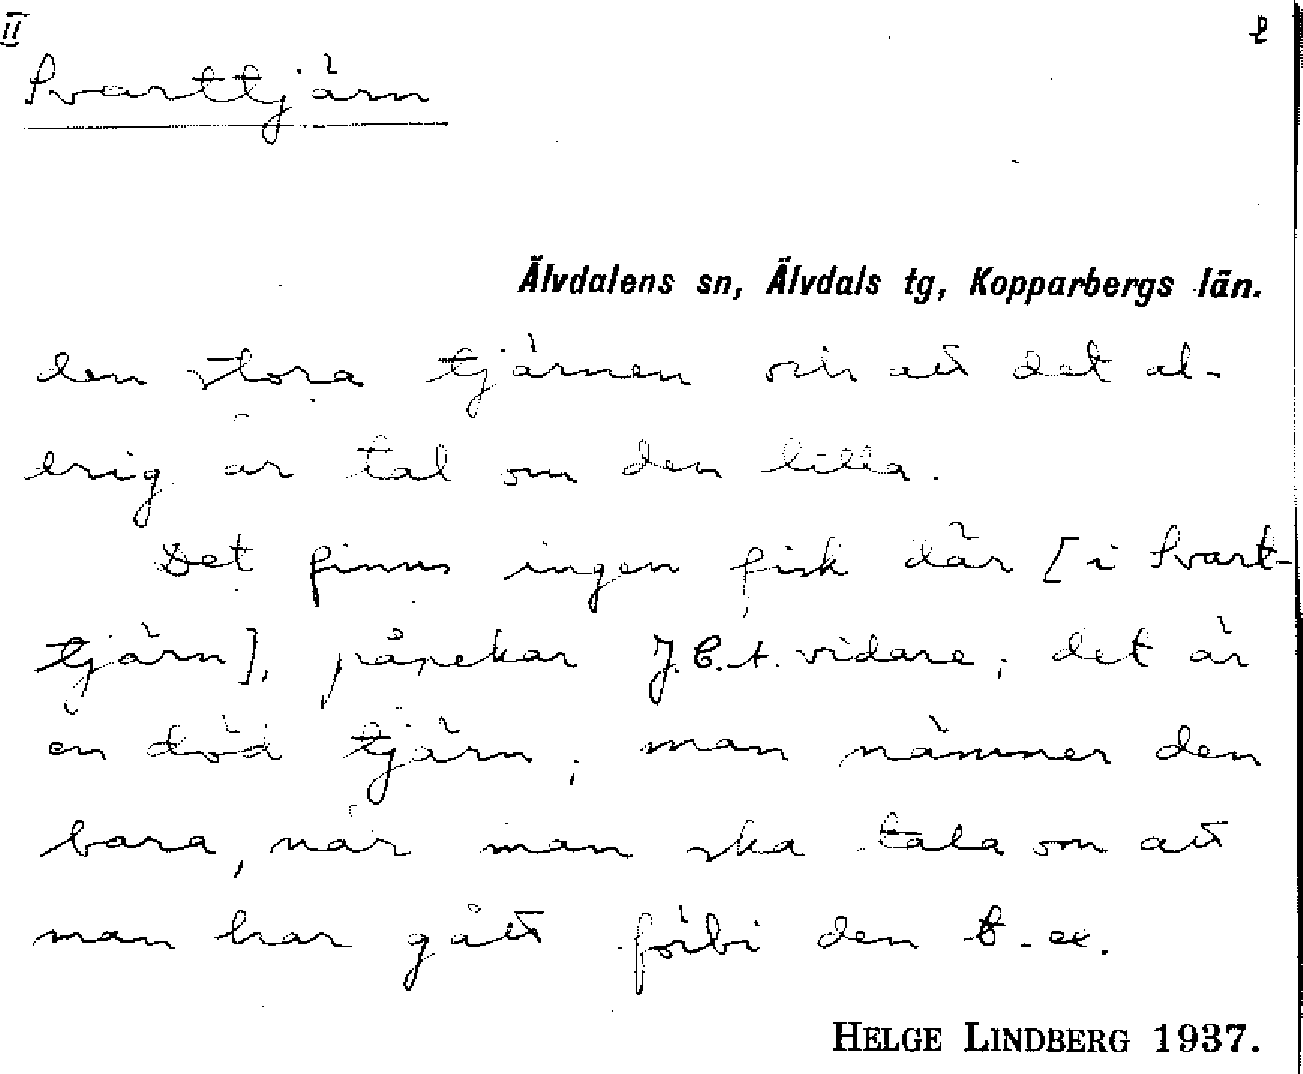 II l
Svarttjärn
Älvdalens sn, Älvdals tg, Kopparbergs län.
den stora tjärnen och att det al-
drig är tal om den lilla.
Det finns ingen fisk där [i Svart-
tjärn], påpekar J. vidare; det är
en död tjärn; man nämner den
bara, när man ska tala om att
man har gått förbi den t. ex.
HELGE LINDBERG 1937.